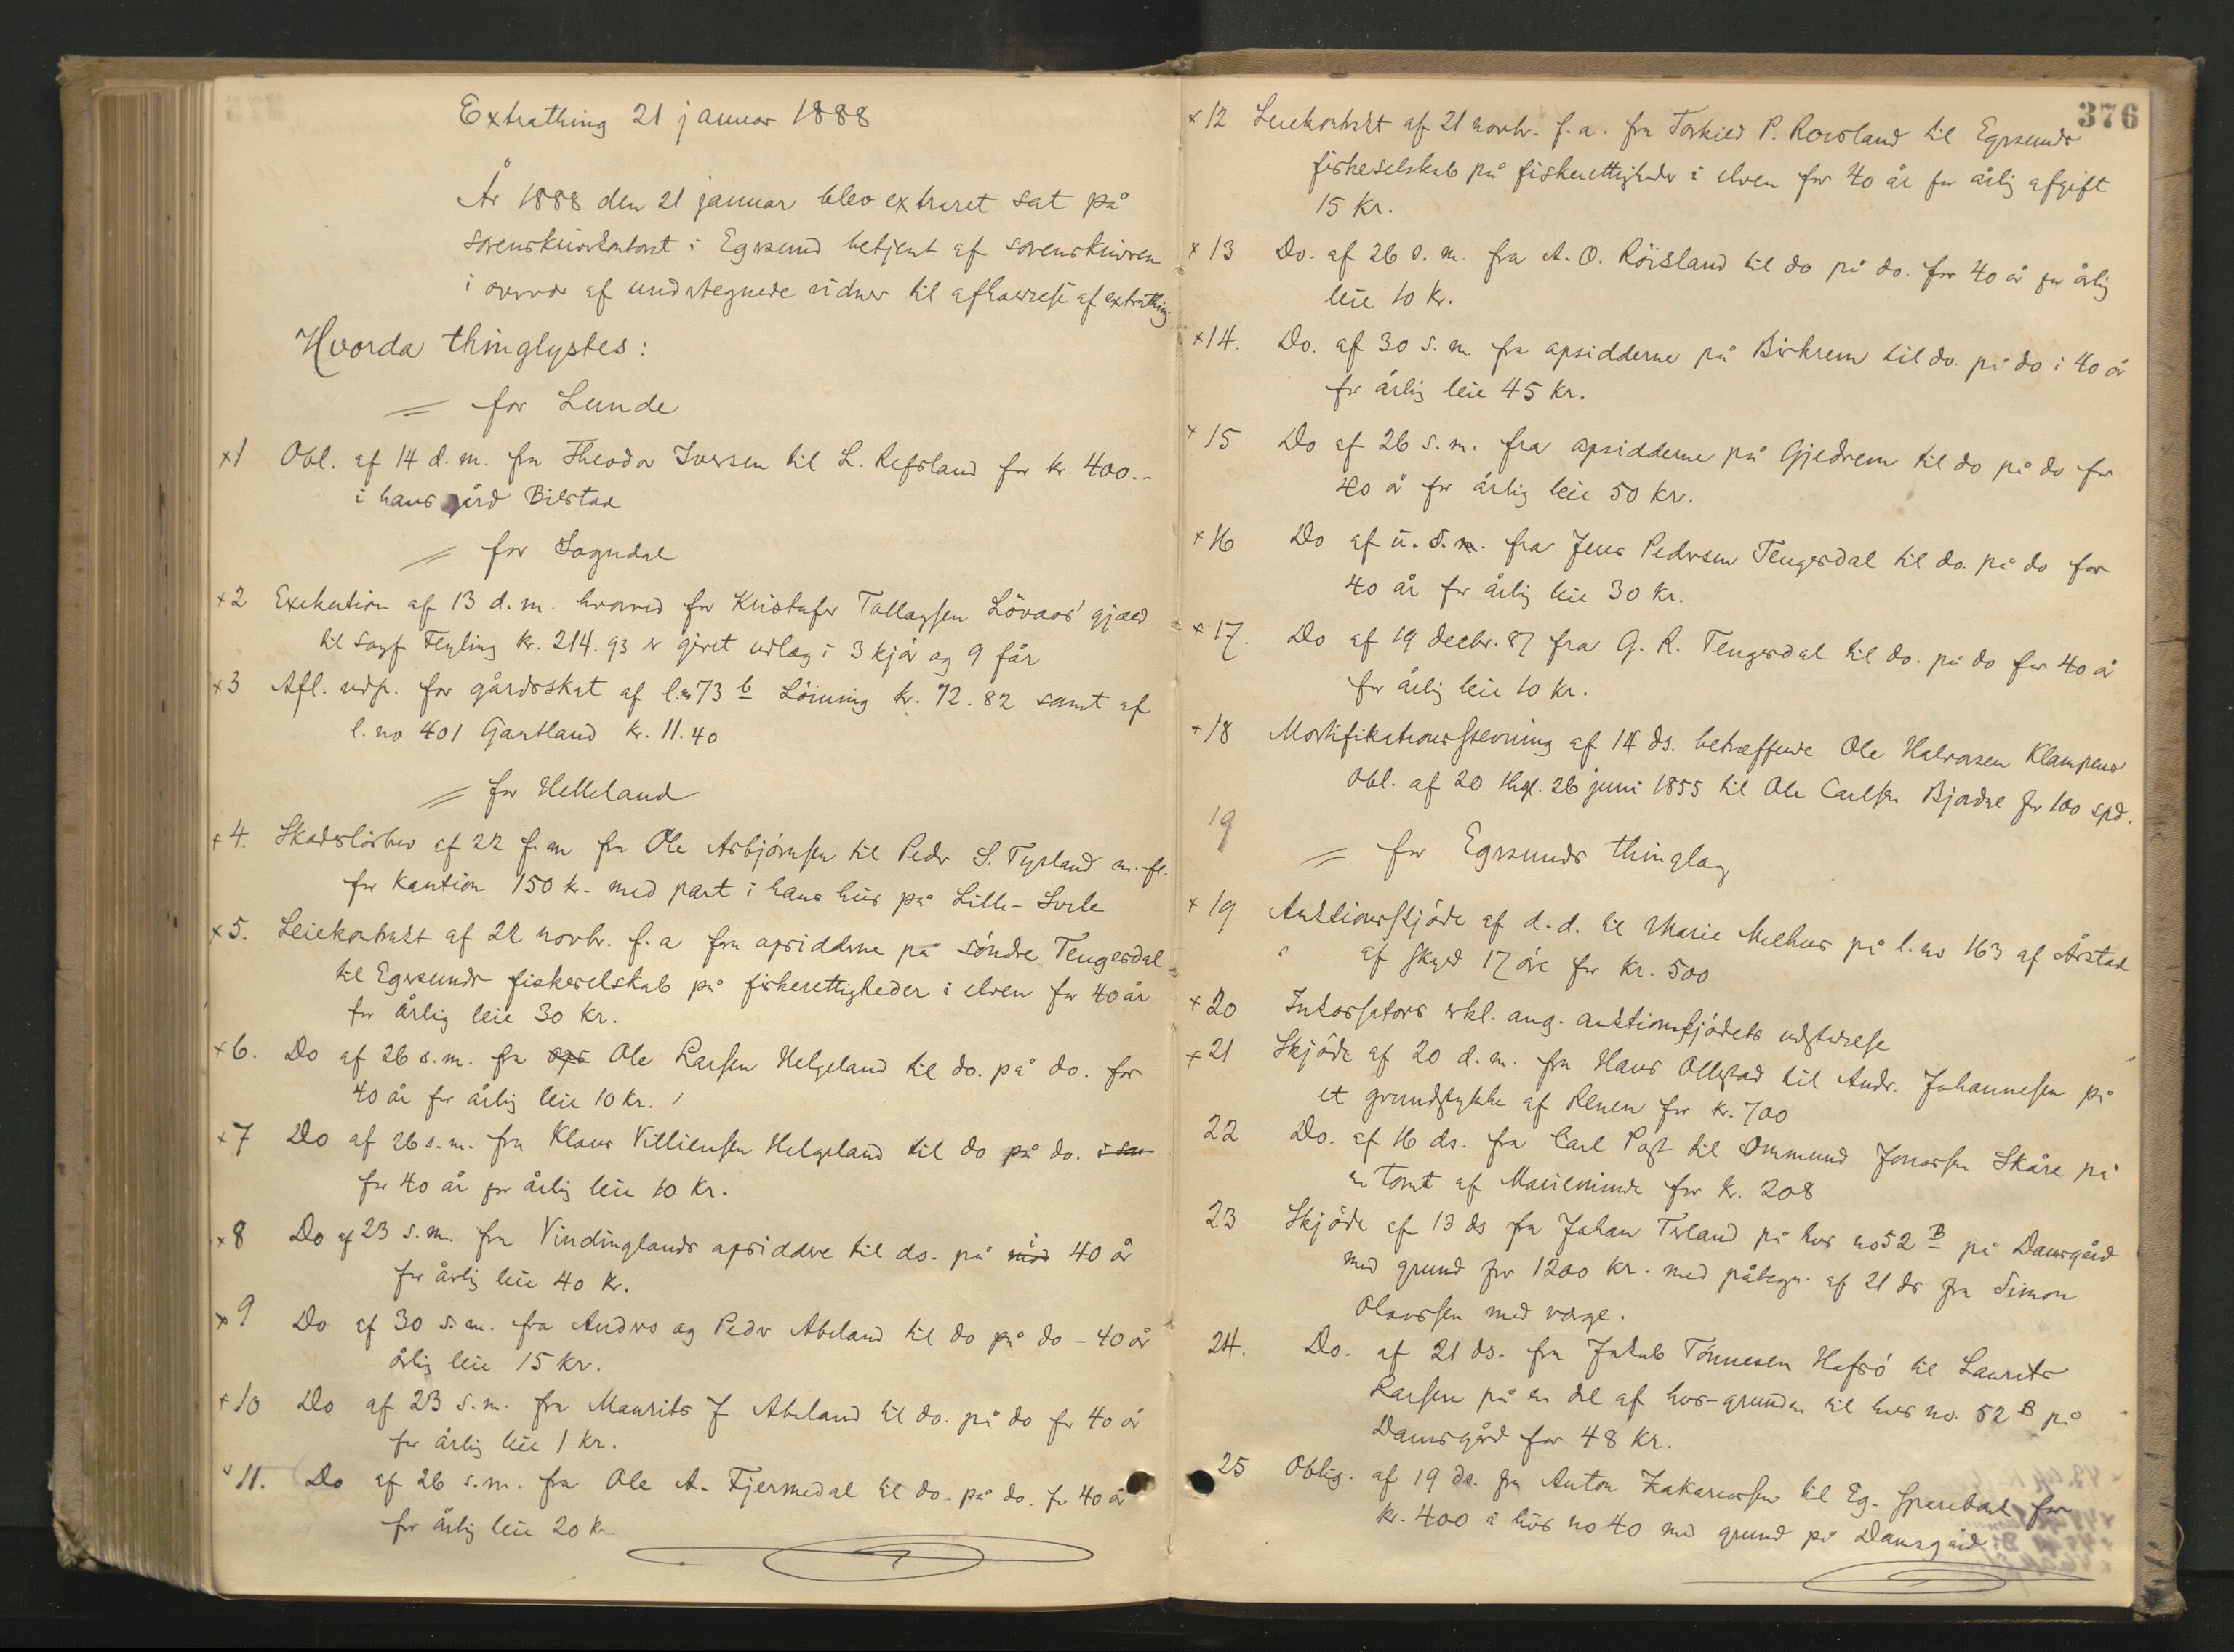 Extrathing 21 januar 1888
År 1888 den 21 januar blev extraret sat på
sorenskriverkontoret i Egersund betjent af sorenskriveren
i overvær af undertegnede vidner til afholdelse af extrathing
Hvorda thinglystes:
= for Lunde
x1 Obl. af 14 d.m. fra Theodor Iversen til L. Refsland for kr. 400.-
i hans gård Bilstad
= for Sogndal
x2 Exekution af 13 d.m. hvorved for Kristofer Tollagsen Lövaas' gjæld
til sagf. Feyling kr. 214.93 er givet udlæg i 3 kjör og 9 får
x3 Afl. udp. for gårdsskat af l.n 73 b Löining kr. 72.82 samt af
l. no 401 Gartland kr. 11.40
= for Helleland
x4. Skadeslösbrev af 22 f.m fra Ole Asbjörnsen til Peder S. Tysland m.fl.
for kaution 150 k. med pant i hans hus på Lille-Svele
x5. Leiekontrakt af 22 novbr. f.a fra opsidderne på söndre Tengesdal
til Egersunds fiskeselskab på fiskerettigheder i elven for 40 år
for årlig leie 30 kr.
x6. Do af 26 s.m. fra ops Ole Larsen Helgeland til do. på do. for
40 år for årlig leie 10 kr.
x7 Do af 26 s.m. fra Klaus Villiensen Helgeland til do på do.
for 40 år for årlig leie 10 kr.
x8 Do af 23 s.m. fra Vindinglands opsiddere til do. på i 40 år
for årlig leie 40 kr.
x9 Do af 30 s.m. fra Anders og Peder Abeland til do på do - 40 år
årlig leie 15 kr.
x10 Do af 23 s.m. fra Maurits J Abeland til do. på do for 40 år
for årlig leie 1 kr.
x11. Do af 26 s.m. fra Ole A. Fjermedal til do. på do. for 40 år
for årlig leie 20 kr.
376
x12 Leiekontrakt af 21 novbr. f.a. fra Torkild P. Rovsland til Egersunds
fiskeselskab på fiskerettigheder i elven for 40 år for årlig afgift
15 kr.
x13 Do. af 26 s.m. fra A. O. Röisland til do på do. for 40 år for årlig
leie 10 kr.
x14. Do. af 30 s.m. fra opsidderne på Birkrem til do. på do i 40 år
for årlig leie 45 kr.
x15 Do af 26 s.m. fra opsidderne på Gjedrem til do på do for
40 år for årlig leie 50 kr.
x16 Do af u. d.m. fra Jens Pedersen Tengesdal til do. på do for
40 år for årlig leie 30 kr.
x17. Do af 19 decbr. 87 fra G. R. Tengesdal til do. på do for 40 år
for årlig leie 10 kr.
x18 Mortifikationsstevning af 14 ds. betræffende Ole Halvorsen Klampens
obl. af 20 thgl. 26 juni 1855 til Ole Carlsen Bjordal for 100 spd.
19
= for Egersunds thinglag
x19 Auktionsskjöde af d.d. til Marie Melhus på l. no 163 af Årstad
af skyld 17 öre for kr. 500
x20 Inkassators erkl. ang. auktionsskjödets udstedelse
x21 Skjöde af 20 d.m. fra Hans Ollestad til Andr. Johannesen på
et grundstykke af Renen for kr. 700
22 Do. af 16 ds. fra Carl Post til Ommund Jonassen Skåre på
en tomt af Marieminde for k. 208
23 Skjöde af 13 ds fra Johan Terland på hus no 52 B på Damsgård
med grund for 1200 kr. med påtegn. af 21 ds fra Simon
Olaussen med værge.
24. Do. af 21 ds. fra Jakob Tönnesen Hafsö til Laurits
Larsen på en del af hus-grunden til hus no. 52 B på
Damsgård for 48 kr.
25 Oblig. af 19 ds. fra Anton Zakariassen til Eg. sparebank for
kr. 400 i hus no 40 med grund på Damsgård.